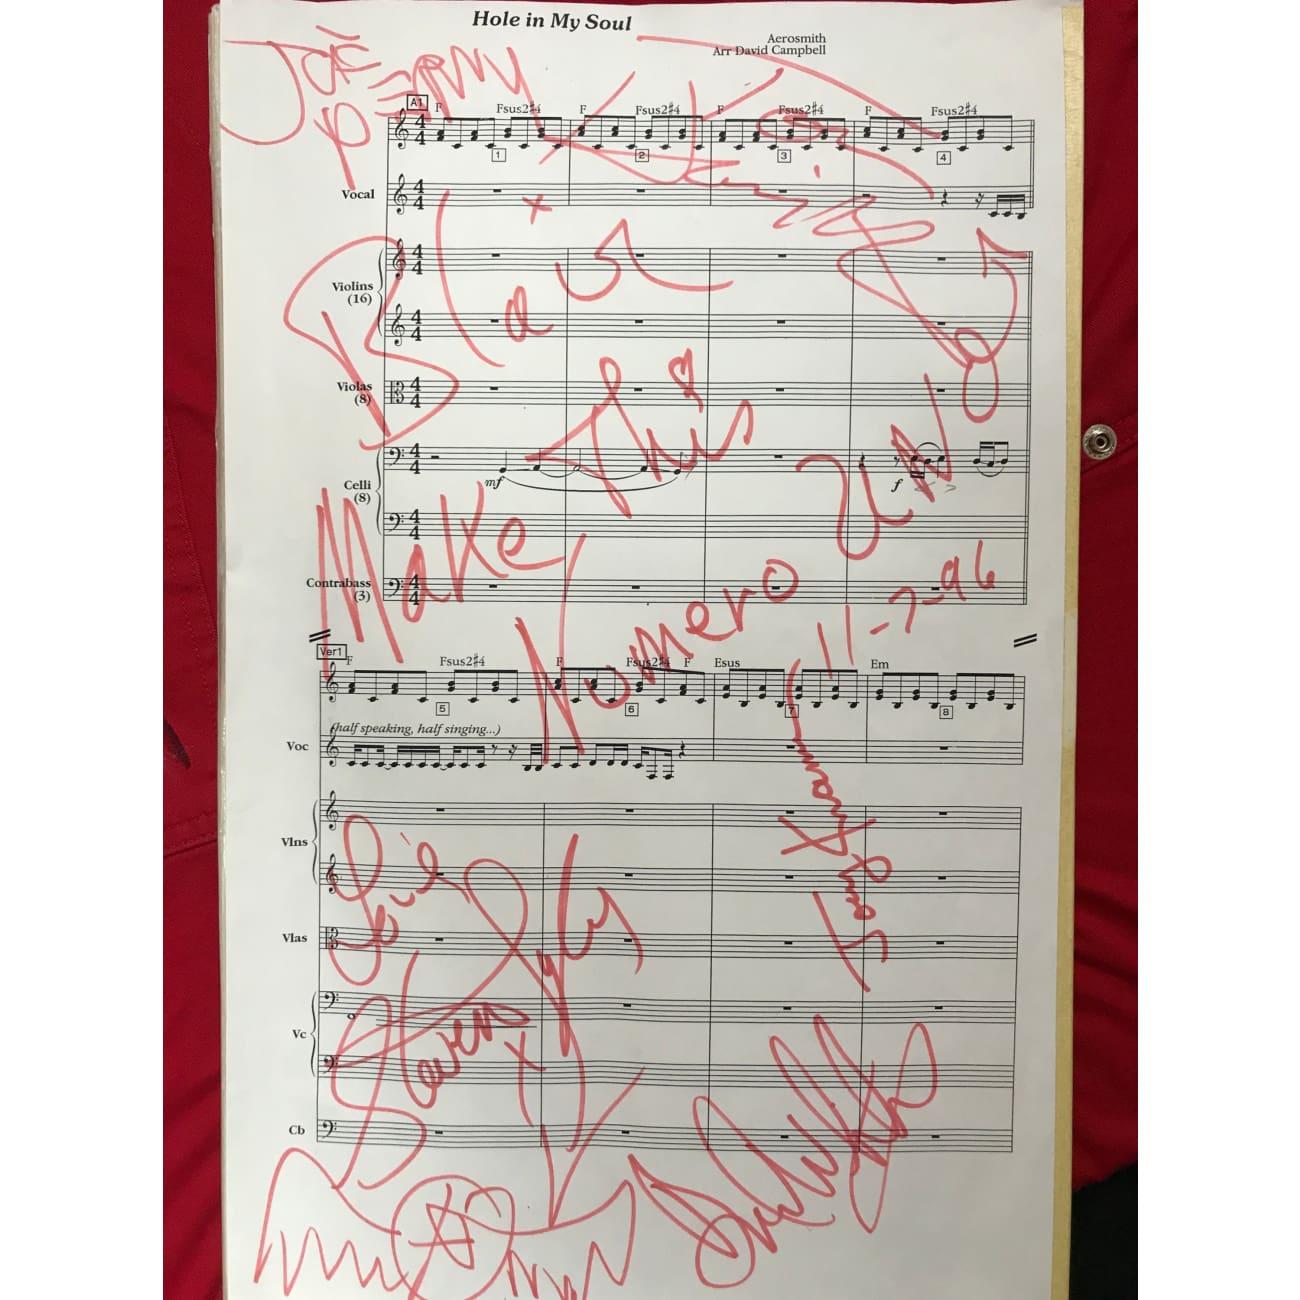 Hole in My Soul
Aerosmith
Arr David Campbell
Joe
Perry
A1 F Fsus2♯4 F Fsus2♯4 F Fsus2♯4 F Fsus2♯4
1 2 3 4
Vocal
Violins
(16)
Violas
(8)
Celli
(8)
mf
f
Contrabass
(3)
Make This
Numero UNO
11-7-96
Ver1 F Fsus2♯4 F Fsus2♯4 F Esus Em
5 6 7 8
(half speaking, half singing...)
Voc
Vlns
Vlas
Vc
Cb
Love
Steven Tyler
Tom Hamilton
Brad Whitford